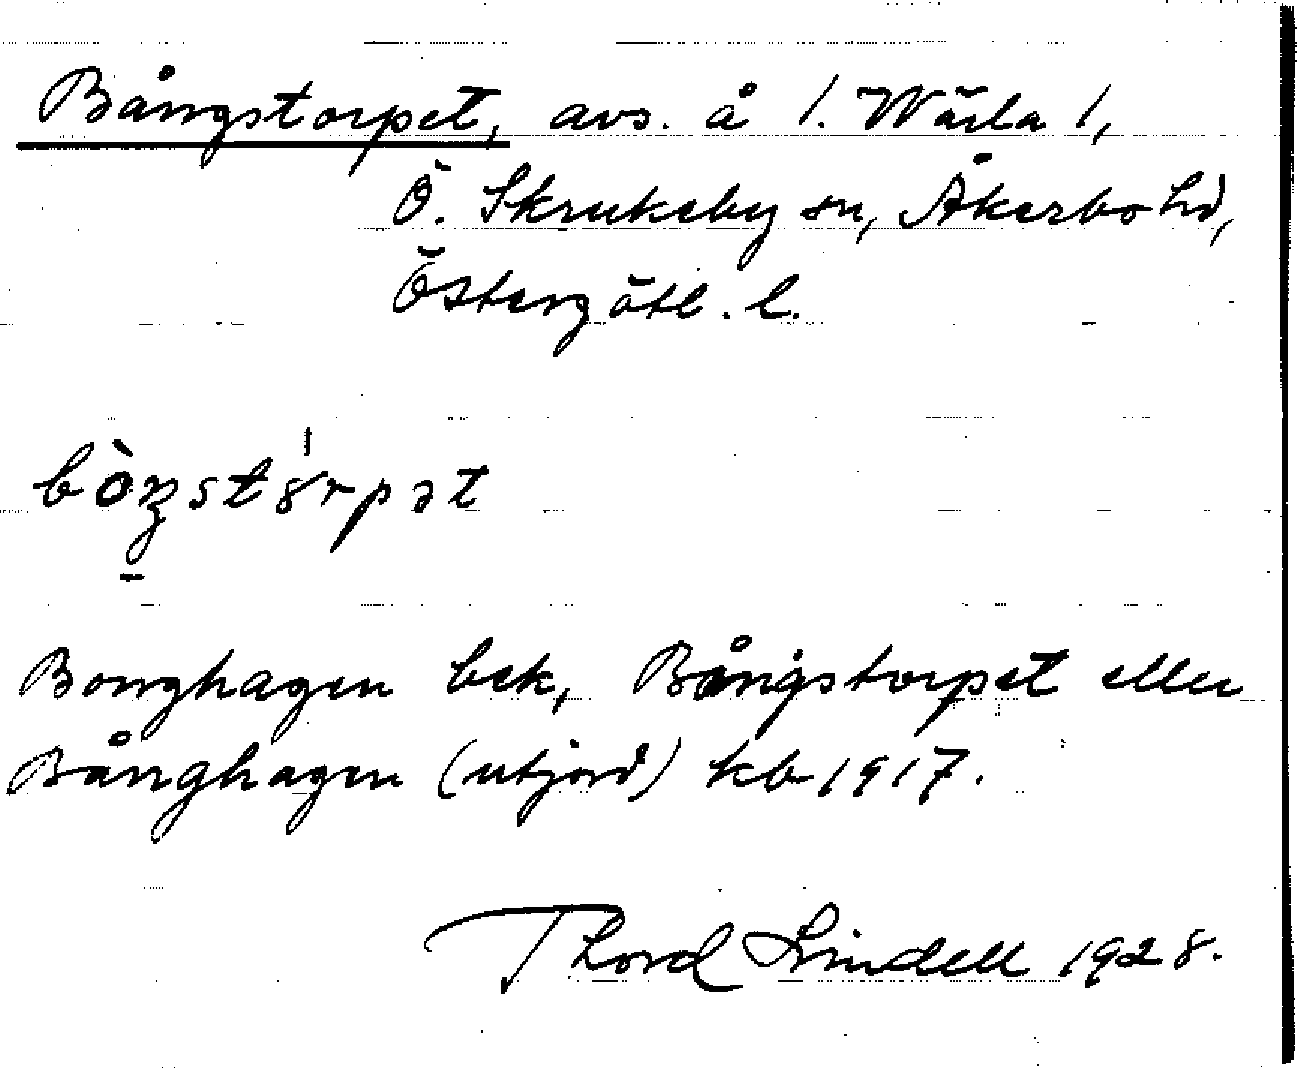 Bångstorpet, avs. å 1. Wärla 1,
Ö. Skrukeby sn, Åkerbo hd,
Östergötl. l.
bòŋstórpət
Bonghagen bek, Bångstorpet eller
Bånghagen (utjord) kb 1917.
Thord Lindell 1928.